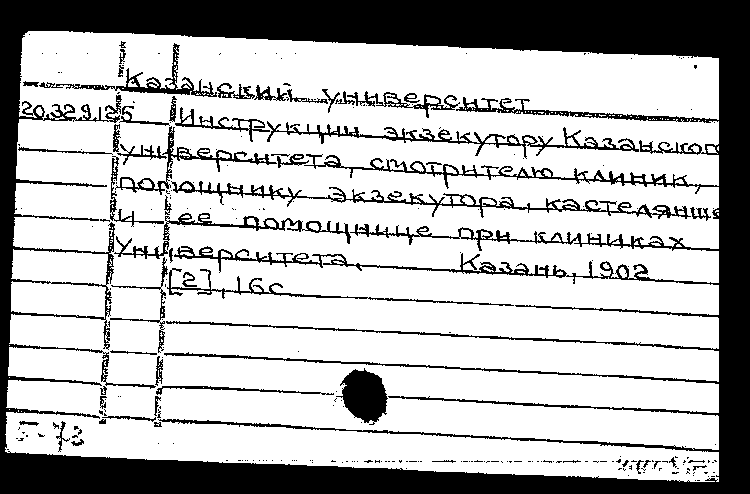 Казанский университет
20.329.125 Инструкции экзекутору Казанского
университета, смотрителю клиник,
помощнику экзекутора, кастелянше
и ее помощнице при клиниках
Университета, Казань, 1902
[2], 16с
5-73